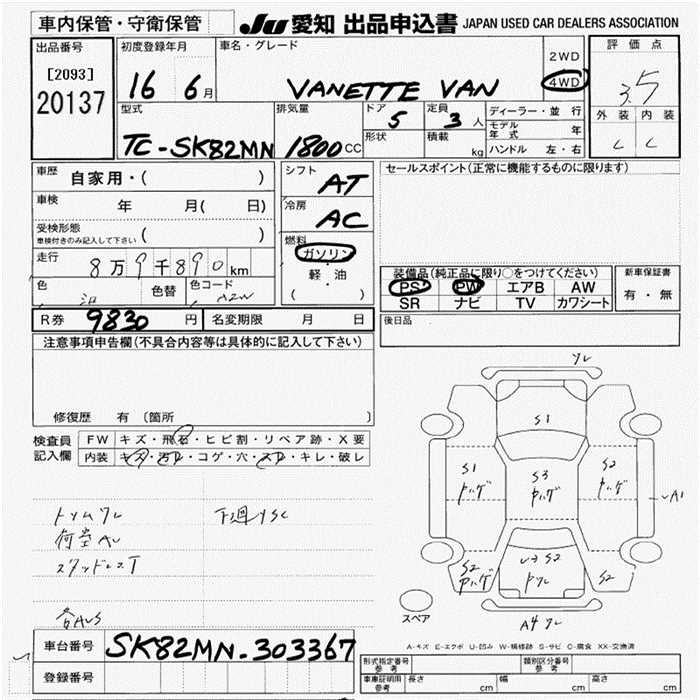 車内保管・守衛保管
JU 愛知 出品申込書 JAPAN USED CAR DEALERS ASSOCIATION
出品番号
[2093]
20137
初度登録年月
16 6月
車名・グレード
VANETTE VAN
2WD
4WD
評価点
3.5
外装 内装
型式
TC-SK82MN
排気量
1800 CC
ドア
5
形状
定員
3人
積載
kg
ディーラー・並行
モデル年式 年
ハンドル 左・右
車歴
自家用・( )
車検
年 月( 日)
受検形態
車検付きのみ記入して下さい ( )
走行
8万9千890km
色
色替
色コード
シフト
AT
冷房
AC
燃料
ガソリン
軽・油
( )
セールスポイント(正常に機能するものに限ります)
装備品(純正品に限り○をつけてください)
PS PW エアB AW
SR ナビ TV カワシート
新車保証書
有・無
R券 9830円
名変期限 月 日
後日品
注意事項申告欄(不具合内容等は具体的に記入して下さい)
修復歴 有 〔箇所 〕
検査員記入欄
FW キズ・飛石・ヒビ割・リペア跡・X要
内装 キズ・汚レ・コゲ・穴・スレ・キレ・破レ
S1
S1
S3
S2
A1
S2
S2
A4
スペア
A-キズ E-エクボ U-凹み W-補修跡 S-サビ C-腐食 XX-交換済
車台番号 SK82MN-303367
登録番号
形式指定番号 参考
類別区分番号 参考
車庫証明用 参考
長さ cm
幅 cm
高さ cm